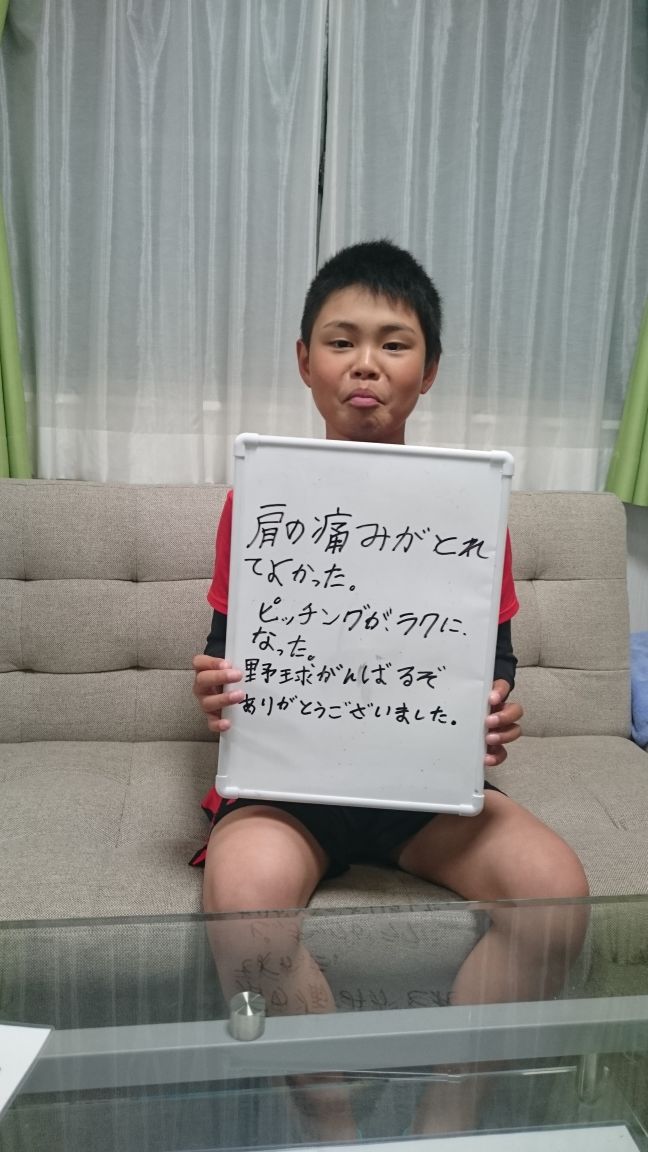 肩の痛みがとれ
てよかった。
ピッチングが、ラクに、
なった。
野球がんばるぞ
ありがとうございました。